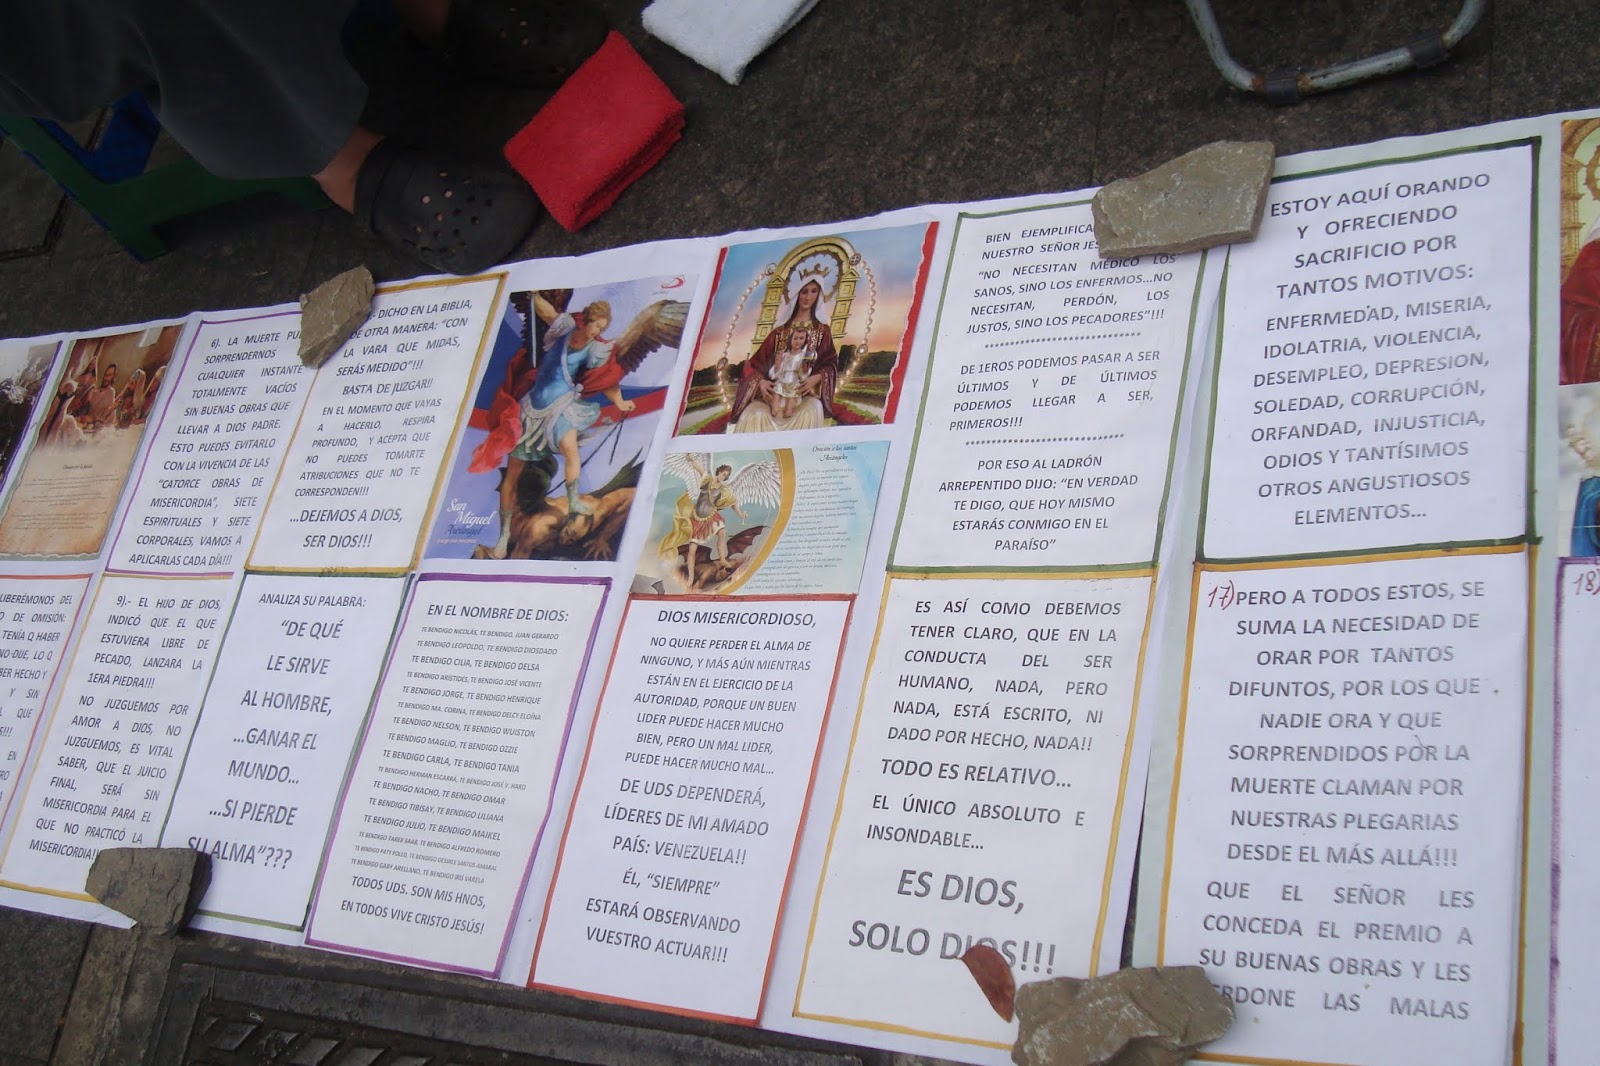 6). LA MUERTE
SORPRENDERNOS
CUALQUIER INSTANTE
TOTALMENTE VACÍOS
SIN BUENAS OBRAS QUE
LLEVAR A DIOS PADRE.
ESTO PUEDES EVITARLO
CON LA VIVENCIA DE LAS
"CATORCE OBRAS DE
MISERICORDIA", SIETE
ESPIRITUALES Y SIETE
CORPORALES, VAMOS A
APLICARLAS CADA DÍA!!!
.- DICHO EN LA BIBLIA,
DE OTRA MANERA: "CON
LA VARA QUE MIDAS,
SERÁS MEDIDO"!!!
BASTA DE JUZGAR!!
EN EL MOMENTO QUE VAYAS
A HACERLO, RESPIRA
PROFUNDO, Y ACEPTA QUE
NO PUEDES TOMARTE
ATRIBUCIONES QUE NO TE
CORRESPONDEN!!!
...DEJEMOS A DIOS,
SER DIOS!!!
San
Miguel
Arcángel
Oración a los santos
Arcángeles
BIEN
NUESTRO SEÑOR
"NO NECESITAN MÉDICO LOS
SANOS, SINO LOS ENFERMOS...NO
NECESITAN, PERDÓN, LOS
JUSTOS, SINO LOS PECADORES"!!!
DE 1EROS PODEMOS PASAR A SER
ÚLTIMOS Y DE ÚLTIMOS
PODEMOS LLEGAR A SER,
PRIMEROS!!!
POR ESO AL LADRÓN
ARREPENTIDO DIJO: "EN VERDAD
TE DIGO, QUE HOY MISMO
ESTARÁS CONMIGO EN EL
PARAÍSO"
ESTOY AQUÍ ORANDO
Y OFRECIENDO
SACRIFICIO POR
TANTOS MOTIVOS:
ENFERMEDAD, MISERIA,
IDOLATRIA, VIOLENCIA,
DESEMPLEO, DEPRESION,
SOLEDAD, CORRUPCIÓN,
ORFANDAD, INJUSTICIA,
ODIOS Y TANTÍSIMOS
OTROS ANGUSTIOSOS
ELEMENTOS...
LIBERÉMONOS DEL
DE OMISIÓN:
TENÍA Q HABER
LO Q
HECHO Y
Y SIN
QUE
EN
9).- EL HIJO DE DIOS,
INDICÓ QUE EL QUE
ESTUVIERA LIBRE DE
PECADO, LANZARA LA
1ERA PIEDRA!!!
NO JUZGUEMOS POR
AMOR A DIOS, NO
JUZGUEMOS, ES VITAL
SABER, QUE EL JUICIO
FINAL, SERÁ SIN
MISERICORDIA PARA EL
QUE NO PRACTICÓ LA
MISERICORDIA!!
ANALIZA SU PALABRA:
"DE QUÉ
LE SIRVE
AL HOMBRE,
...GANAR EL
MUNDO...
...SI PIERDE
SU ALMA"???
EN EL NOMBRE DE DIOS:
TE BENDIGO NICOLÁS, TE BENDIGO, JUAN GERARDO
TE BENDIGO LEOPOLDO, TE BENDIGO DIOSDADO
TE BENDIGO CILIA, TE BENDIGO DELSA
TE BENDIGO ARÍSTIDES, TE BENDIGO JOSÉ VICENTE
TE BENDIGO JORGE, TE BENDIGO HENRIQUE
TE BENDIGO MA. CORINA, TE BENDIGO DELCY ELOÍNA
TE BENDIGO NELSON, TE BENDIGO WUISTON
TE BENDIGO MAGLIO, TE BENDIGO OZZIE
TE BENDIGO CARLA, TE BENDIGO TANIA
TE BENDIGO HERMAN ESCARRÁ, TE BENDIGO JOSÉ V. HARO
TE BENDIGO NACHO, TE BENDIGO OMAR
TE BENDIGO TIBISAY, TE BENDIGO LILIANA
TE BENDIGO JULIO, TE BENDIGO MAIKEL
TE BENDIGO TAREK SAAB, TE BENDIGO ALFREDO ROMERO
TE BENDIGO PATY POLEO, TE BENDIGO DESIREE SANTOS AMARAL
TE BENDIGO GABY ARELLANO, TE BENDIGO IRIS VARELA
TODOS UDS. SON MIS HNOS,
EN TODOS VIVE CRISTO JESÚS!
DIOS MISERICORDIOSO,
NO QUIERE PERDER EL ALMA DE
NINGUNO, Y MÁS AÚN MIENTRAS
ESTÁN EN EL EJERCICIO DE LA
AUTORIDAD, PORQUE UN BUEN
LIDER PUEDE HACER MUCHO
BIEN, PERO UN MAL LIDER,
PUEDE HACER MUCHO MAL...
DE UDS DEPENDERÁ,
LÍDERES DE MI AMADO
PAÍS: VENEZUELA!!
ÉL, "SIEMPRE"
ESTARÁ OBSERVANDO
VUESTRO ACTUAR!!!
ES ASÍ COMO DEBEMOS
TENER CLARO, QUE EN LA
CONDUCTA DEL SER
HUMANO, NADA, PERO
NADA, ESTÁ ESCRITO, NI
DADO POR HECHO, NADA!!
TODO ES RELATIVO...
EL ÚNICO ABSOLUTO E
INSONDABLE...
ES DIOS,
SOLO DIOS!!!
17) PERO A TODOS ESTOS, SE
SUMA LA NECESIDAD DE
ORAR POR TANTOS
DIFUNTOS, POR LOS QUE
NADIE ORA Y QUE
SORPRENDIDOS POR LA
MUERTE CLAMAN POR
NUESTRAS PLEGARIAS
DESDE EL MÁS ALLÁ!!!
QUE EL SEÑOR LES
CONCEDA EL PREMIO A
SU BUENAS OBRAS Y LES
PERDONE LAS MALAS
18)